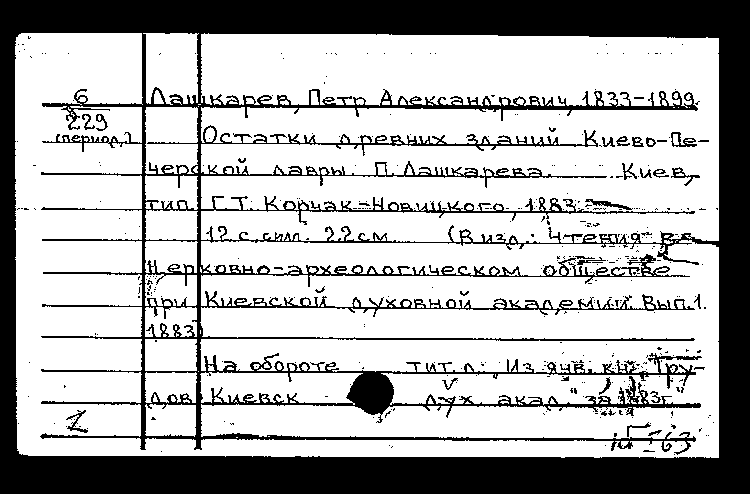 6
229
(период.)
Лашкарев, Петр Александрович, 1833-1899.
Остатки древних зданий Киево-Пе-
черской лавры. П. Лашкарева. Киев,
тип. Г.Т. Корчак-Новицкого, 1883.
12 с. силл. 22 см. (В изд.: Чтения в
Церковно-археологическом обществе
при Киевской духовной академии. Вып. 1.
1883)
На обороте тит. л.: „Из янв. кн. „Тру-
дов Киевск дух. акад." за 1883г."
1